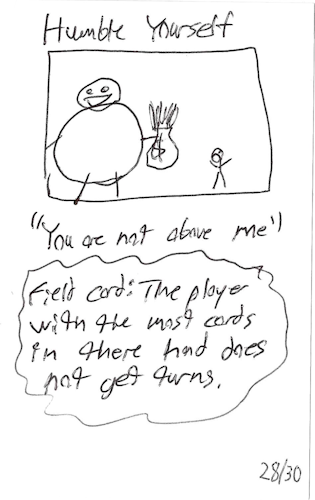 Humble Yourself
$
"You are not above me"
Field card: The player
with the most cards
in there had does
not get turns.
28/30